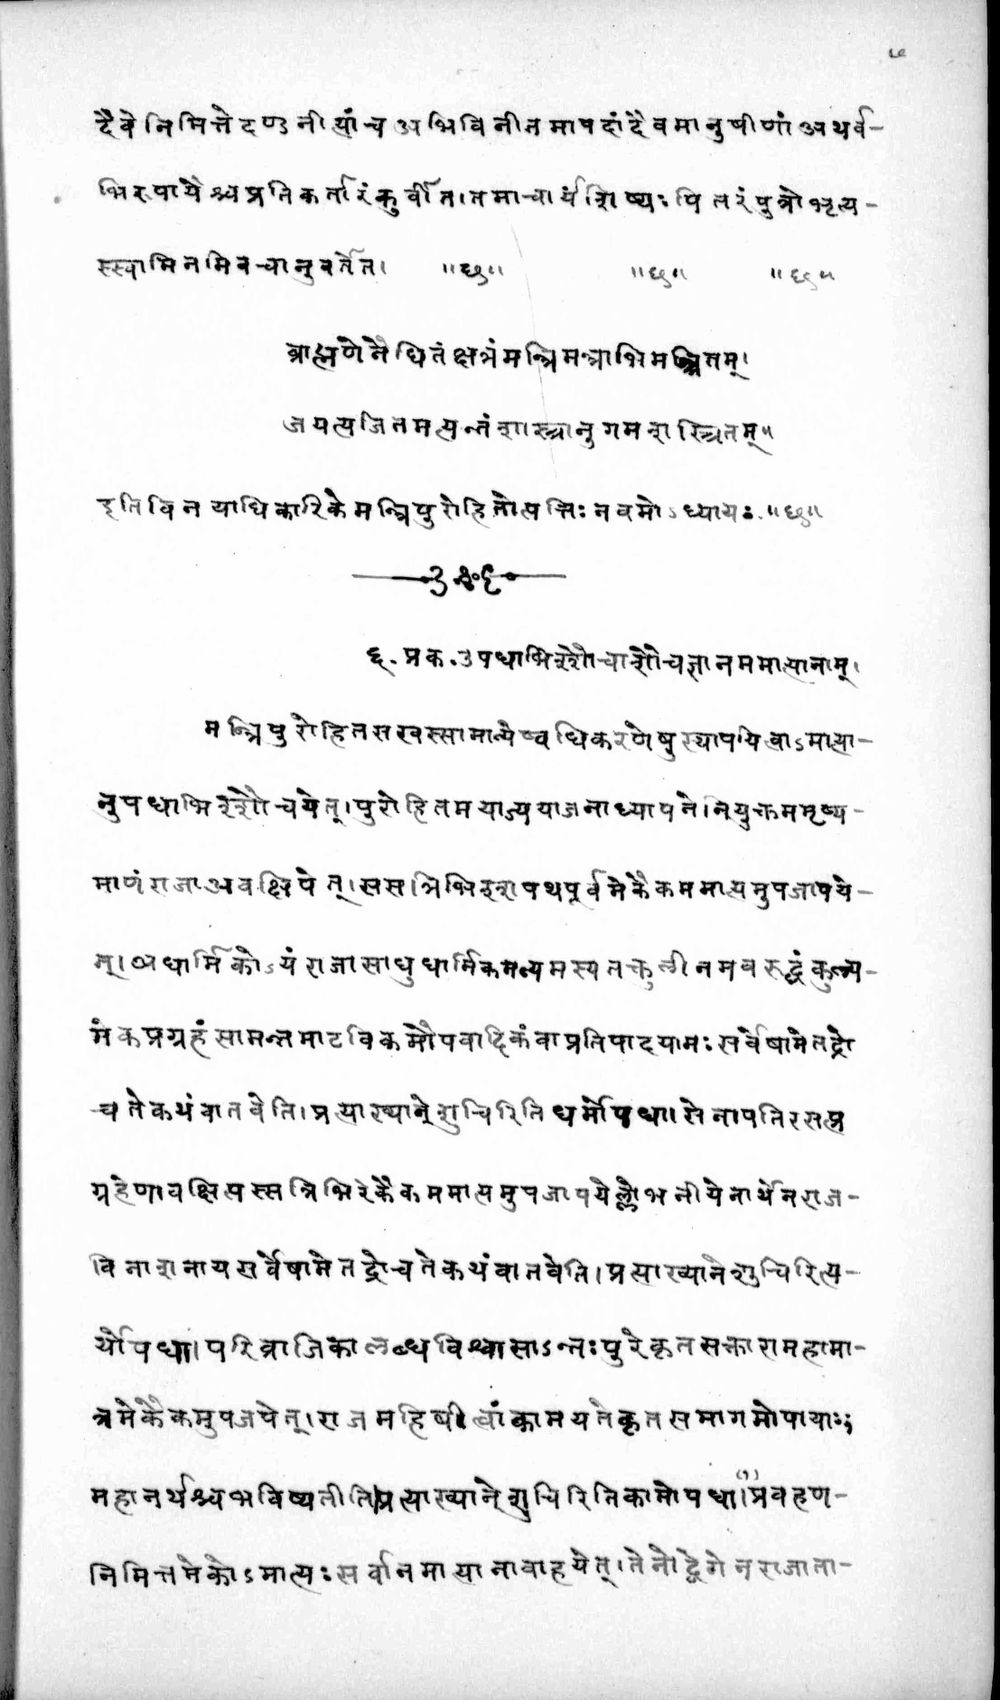 दैवे निमित्ते दण्डनीत्यां च अभिविनीतमापदां दैवमानुषीणां अथर्व-
भिरुपायैश्च प्रतिकर्तारं कुर्वीत। तमाचार्यं शिष्यः पितरं पुत्रो भृत्य-
स्स्वामिनमिव चानुवर्तेत। ॥छ॥ ॥छ॥ ॥छ॥
ब्राह्मणेनैधितं क्षत्रं मन्त्रिमन्त्राभिमन्त्रितम्।
जयत्यजितमत्यन्तं शास्त्रानुगमशस्त्रितम्॥
इति विनयाधिकारिके मन्त्रिपुरोहितोत्पत्तिः नवमोऽध्यायः. ॥छ॥
६. प्रक. उपधाभिश्शौचाशौचज्ञानममात्यानाम्।
मन्त्रिपुरोहितसखस्सामान्येष्वधिकरणेषु स्थापयित्वाऽमात्या-
नुपधाभिश्शौचयेत्। पुरोहितमयाज्ययाजनाध्यापने नियुक्तममृष्य-
माणं राजा अवक्षिपेत्। स सत्रिभिश्शपथपूर्वमेकैकममात्यमुपजापये-
त्। अधार्मिकोऽयं राजा साधु धार्मिकमन्यमस्य तत्कुलीनमवरुद्धं कुल्य-
मेकप्रग्रहं सामन्तमाटविकमौपपादिकं वा प्रतिपादयामः सर्वेषामेतद्रो
चते कथं वा तवेति। प्रत्याख्याने शुचिरिति धर्मोपधा। सेनापतिरसत्प्र
ग्रहेणावक्षिप्तस्सत्रिभिरेकैकममात्यमुपजापयेल्लोभनीयेनार्थेन राज-
विनाशनाय सर्वेषामेतद्रोचते कथं वा तवेति। प्रत्याख्याने शुचिरित्य-
र्थोपधा। परिव्राजिका लब्धविश्वासाऽन्तःपुरे कृतसत्कारा महामा-
त्रमेकैकमुपजपेत्। राजमहिषी त्वां कामयते कृतसमागमोपायाः;
महानर्थश्च भविष्यतीति। प्रत्याख्याने शुचिरिति कामोपधा।(१) प्रवहण-
निमित्तमेकोऽमात्यः सर्वानमात्यानावाहयेत्। तेनोद्वेगेन राजा ता-